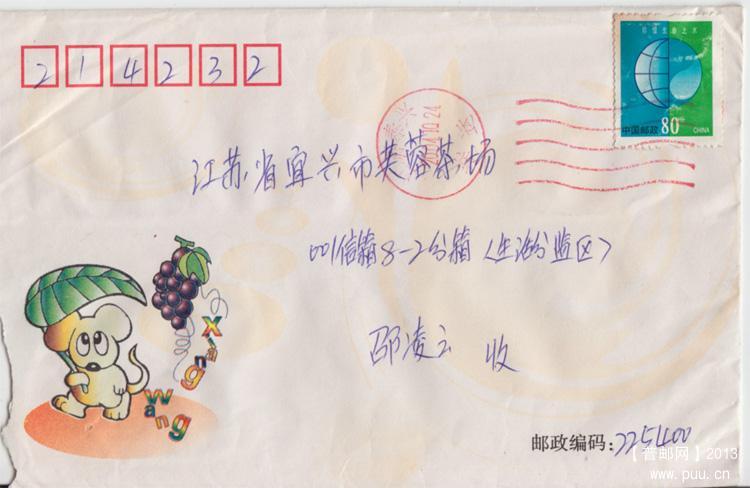 214232
珍惜生命之水
中国邮政 80 CHINA
2004.10.24
江苏省宜兴市芙蓉茶场
001信箱8-2分箱（生活分监区）
邵凌云 收
Xiang
wang
邮政编码：225400
【普邮网】2013
www.puu.cn